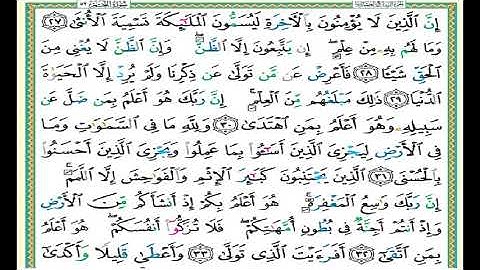 إِنَّ ٱلَّذِينَ لَا يُؤْمِنُونَ بِٱلْأٓخِرَةِ لَيُسَمُّونَ ٱلْمَلَٰٓئِكَةَ تَسْمِيَةَ ٱلْأُنثَىٰ ٢٧
وَمَا لَهُم بِهِۦ مِنْ عِلْمٍ ۖ إِن يَتَّبِعُونَ إِلَّا ٱلظَّنَّ ۖ وَإِنَّ ٱلظَّنَّ لَا يُغْنِى مِنَ
ٱلْحَقِّ شَيْـًٔا ٢٨ فَأَعْرِضْ عَن مَّن تَوَلَّىٰ عَن ذِكْرِنَا وَلَمْ يُرِدْ إِلَّا ٱلْحَيَوٰةَ
ٱلدُّنْيَا ٢٩ ذَٰلِكَ مَبْلَغُهُم مِّنَ ٱلْعِلْمِ ۚ إِنَّ رَبَّكَ هُوَ أَعْلَمُ بِمَن ضَلَّ عَن
سَبِيلِهِۦ وَهُوَ أَعْلَمُ بِمَنِ ٱهْتَدَىٰ ٣٠ وَلِلَّهِ مَا فِى ٱلسَّمَٰوَٰتِ وَمَا
فِى ٱلْأَرْضِ لِيَجْزِىَ ٱلَّذِينَ أَسَٰٓـُٔوا۟ بِمَا عَمِلُوا۟ وَيَجْزِىَ ٱلَّذِينَ أَحْسَنُوا۟
بِٱلْحُسْنَى ٣١ ٱلَّذِينَ يَجْتَنِبُونَ كَبَٰٓئِرَ ٱلْإِثْمِ وَٱلْفَوَٰحِشَ إِلَّا ٱللَّمَمَ ۚ
إِنَّ رَبَّكَ وَٰسِعُ ٱلْمَغْفِرَةِ ۚ هُوَ أَعْلَمُ بِكُمْ إِذْ أَنشَأَكُم مِّنَ ٱلْأَرْضِ
وَإِذْ أَنتُمْ أَجِنَّةٌ فِى بُطُونِ أُمَّهَٰتِكُمْ ۖ فَلَا تُزَكُّوٓا۟ أَنفُسَكُمْ ۖ هُوَ أَعْلَمُ
بِمَنِ ٱتَّقَىٰٓ ٣٢ أَفَرَءَيْتَ ٱلَّذِى تَوَلَّىٰ ٣٣ وَأَعْطَىٰ قَلِيلًا وَأَكْدَىٰٓ